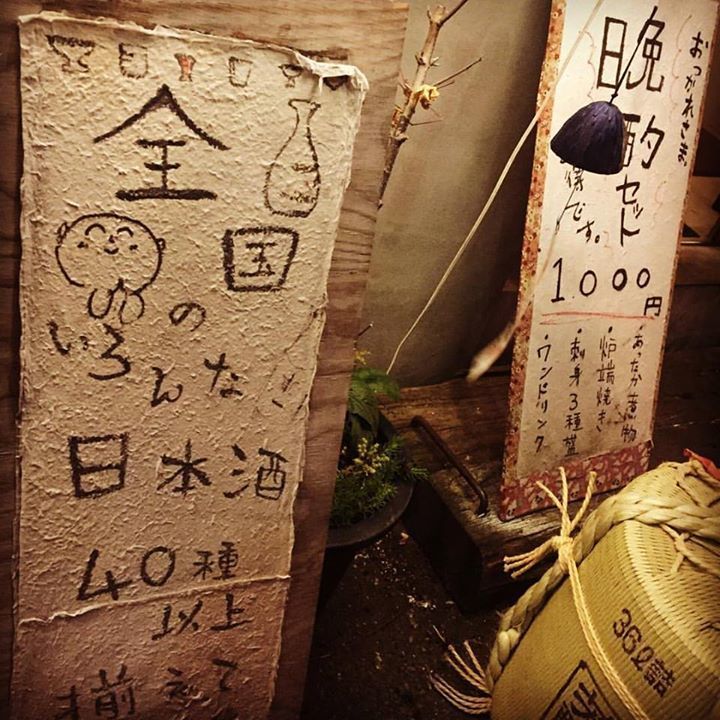 全国の
いろんな
日本酒
40種
以上
揃えて
おつかれさま
晩酌セット
得です。
1.000円
・あったか煮物
・炉端焼き
・刺身3種盛
・ワンドリンク
36ℓ詰